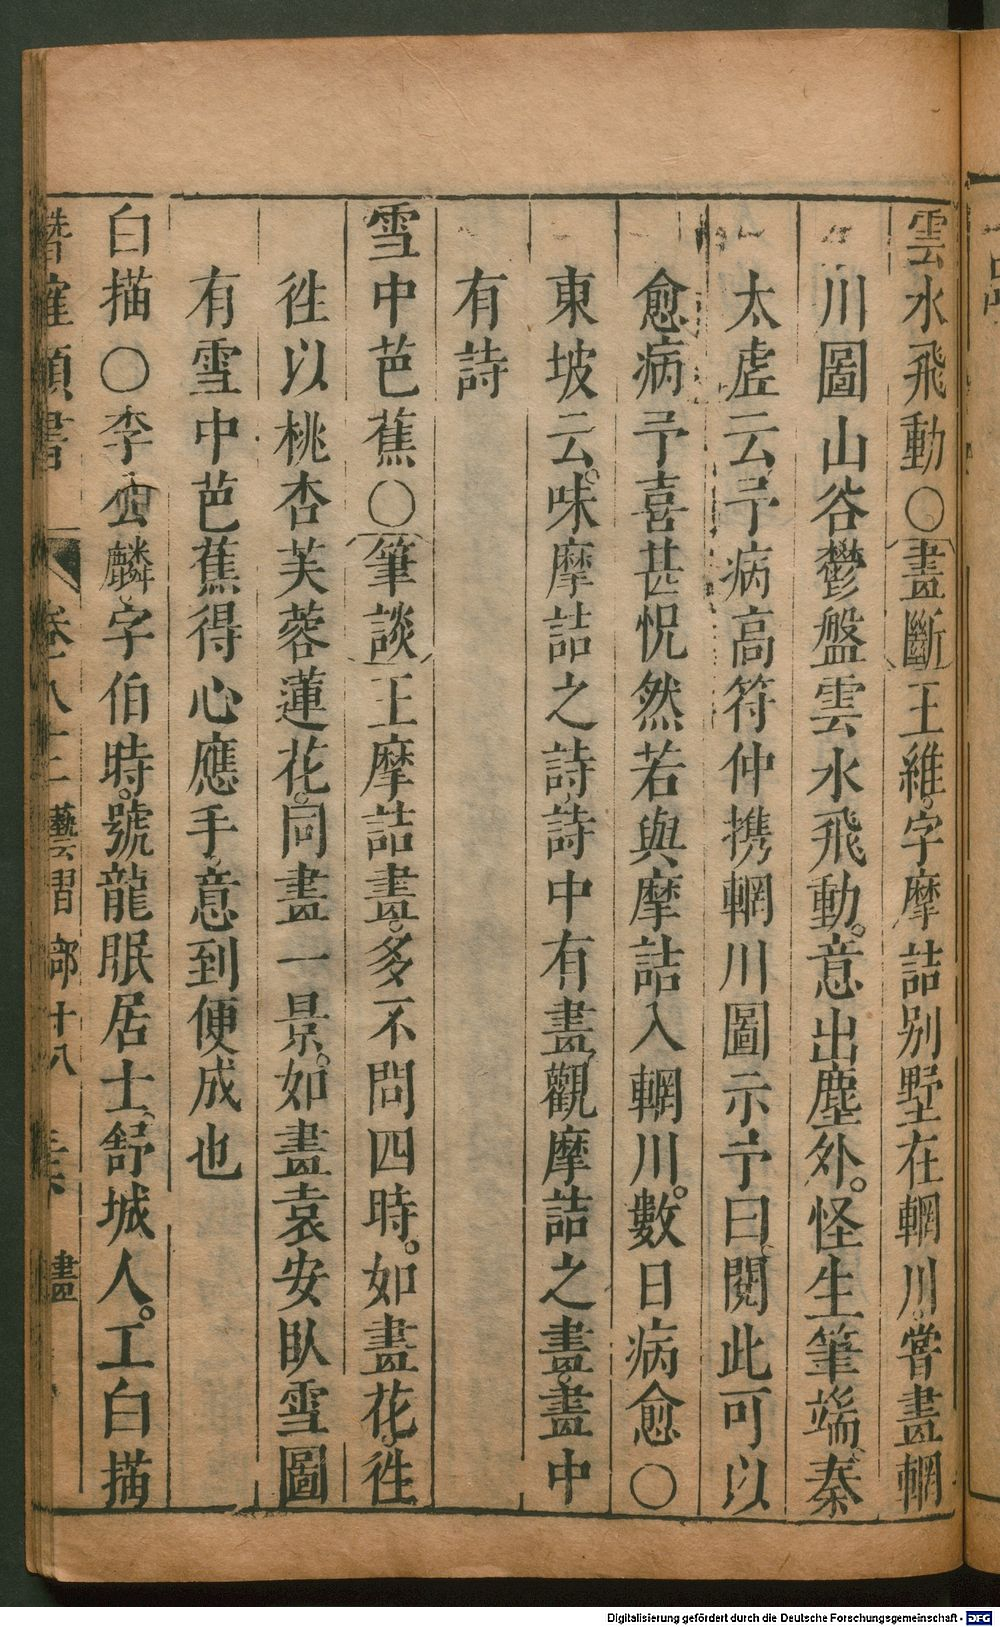 雲水飛動○畫斷王維字摩詰別墅在輞川嘗畫輞
川圖山谷鬱盤雲水飛動。意出塵外。怪生筆端秦
太虛云予病高符仲携輞川圖示予曰閱此可以
愈病予喜甚怳然若與摩詰入輞川。數日病愈○
東坡云。味摩詰之詩詩中有畫觀摩詰之畫畫中
有詩
雪中芭蕉○筆談王摩詰畫。多不問四時。如畫花徃
徃以桃杏芙蓉蓮花。同畫一景。如畫袁安臥雪圖
有雪中芭蕉得心應手意到便成也
白描○李公麟字伯時。號龍眠居士舒城人。工白描
潛確類書 卷八十二 藝習部十八 畫
Digitalisierung gefördert durch die Deutsche Forschungsgemeinschaft - DFG